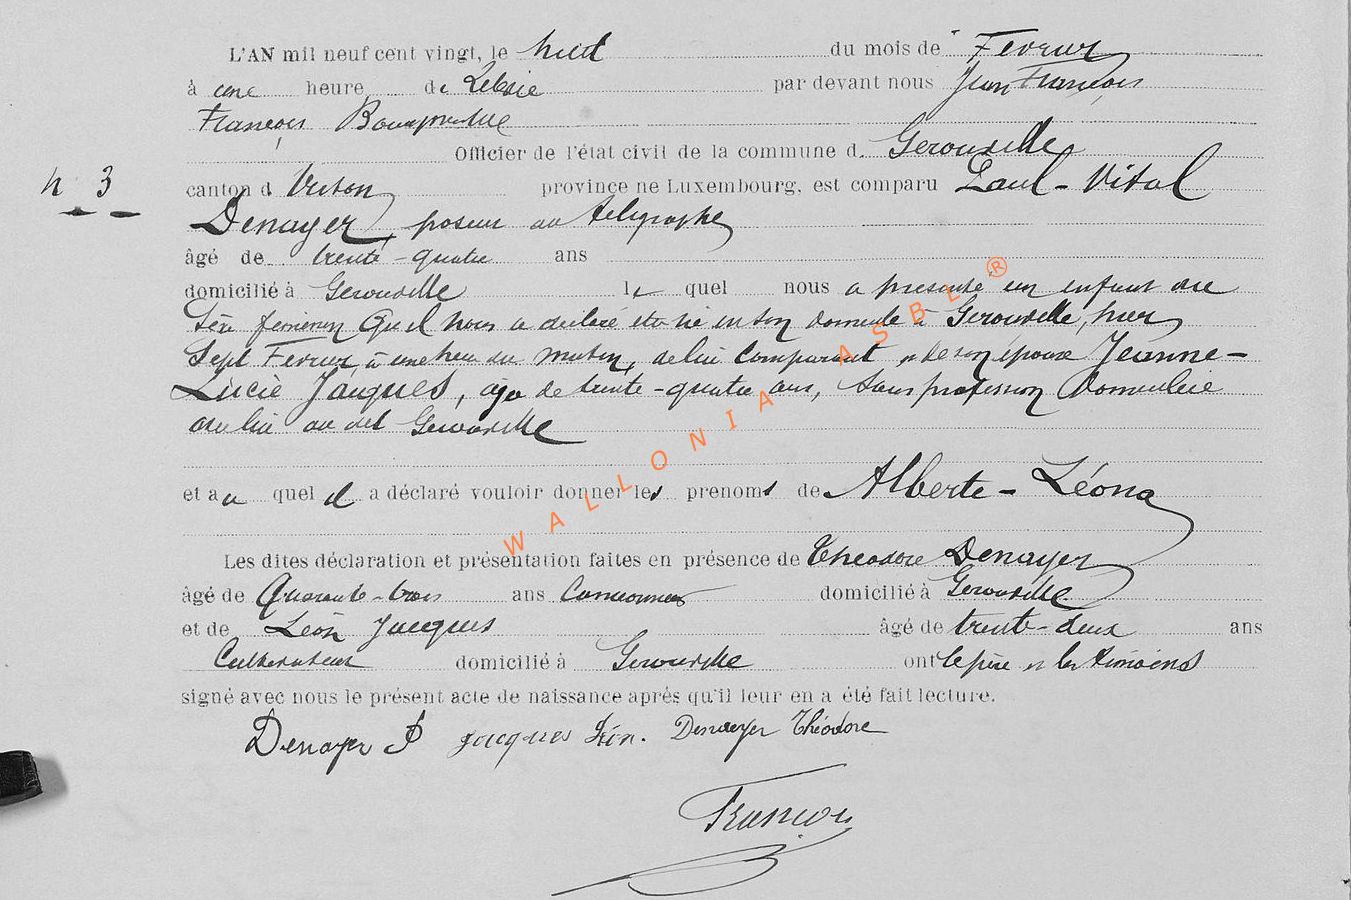 L'AN mil neuf cent vingt, le huit du mois de Fevrier
à une heure de Relevée par devant nous Jean François
François Bourgmestre
Officier de l'état civil de la commune d. Gerouville
n 3 canton d Virton province de Luxembourg, est comparu Paul - Vital
Denayer, poseur au télégraphe
âgé de trente - quatre ans
domicilié à Gerouville le quel nous a présenté un enfant du
sexe féminin qu'il nous a déclaré être né en son domicile à Gerouville, hier
Sept Fevrier à une heure du matin, de lui comparant et de son épouse Jeanne -
Lucie Jacques, agée de trente - quatre ans, sans profession domiciliée
avec lui au dit Gerouville
et au quel il a déclaré vouloir donner les prenoms de Alberte - Léona
Les dites déclaration et présentation faites en présence de Théodore Denayer
âgé de Quarante - trois ans Cantonnier domicilié à Gerouville
et de Léon Jacques âgé de trente - deux ans
Cultivateur domicilié à Gerouville ont le père et les témoins
signé avec nous le présent acte de naissance après qu'il leur en a été fait lecture.
Denayer P Jacques Léon. Denayer Théodore
François
WALLONIA ASBL ®